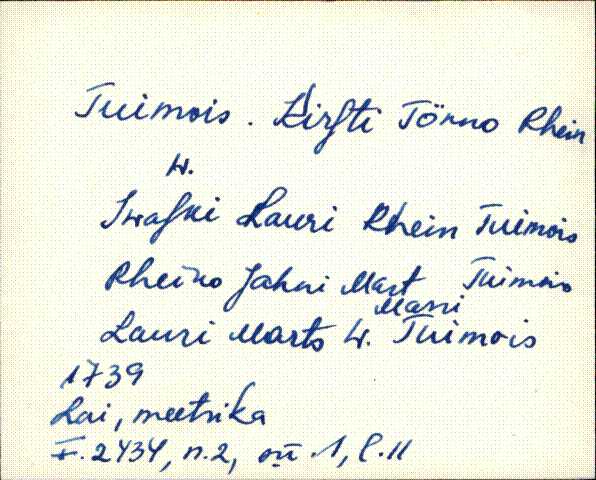 Tuimois. Kirsti Törno Rhein
W.
Iwaski Lauri Rhein Tuimois
Rheino Jahni Mart Tuimois
Marri
Lauri Marts W. Tuimois
1739
Lai, meetrika
F. 2434, n.2, оп. 1, l. 11